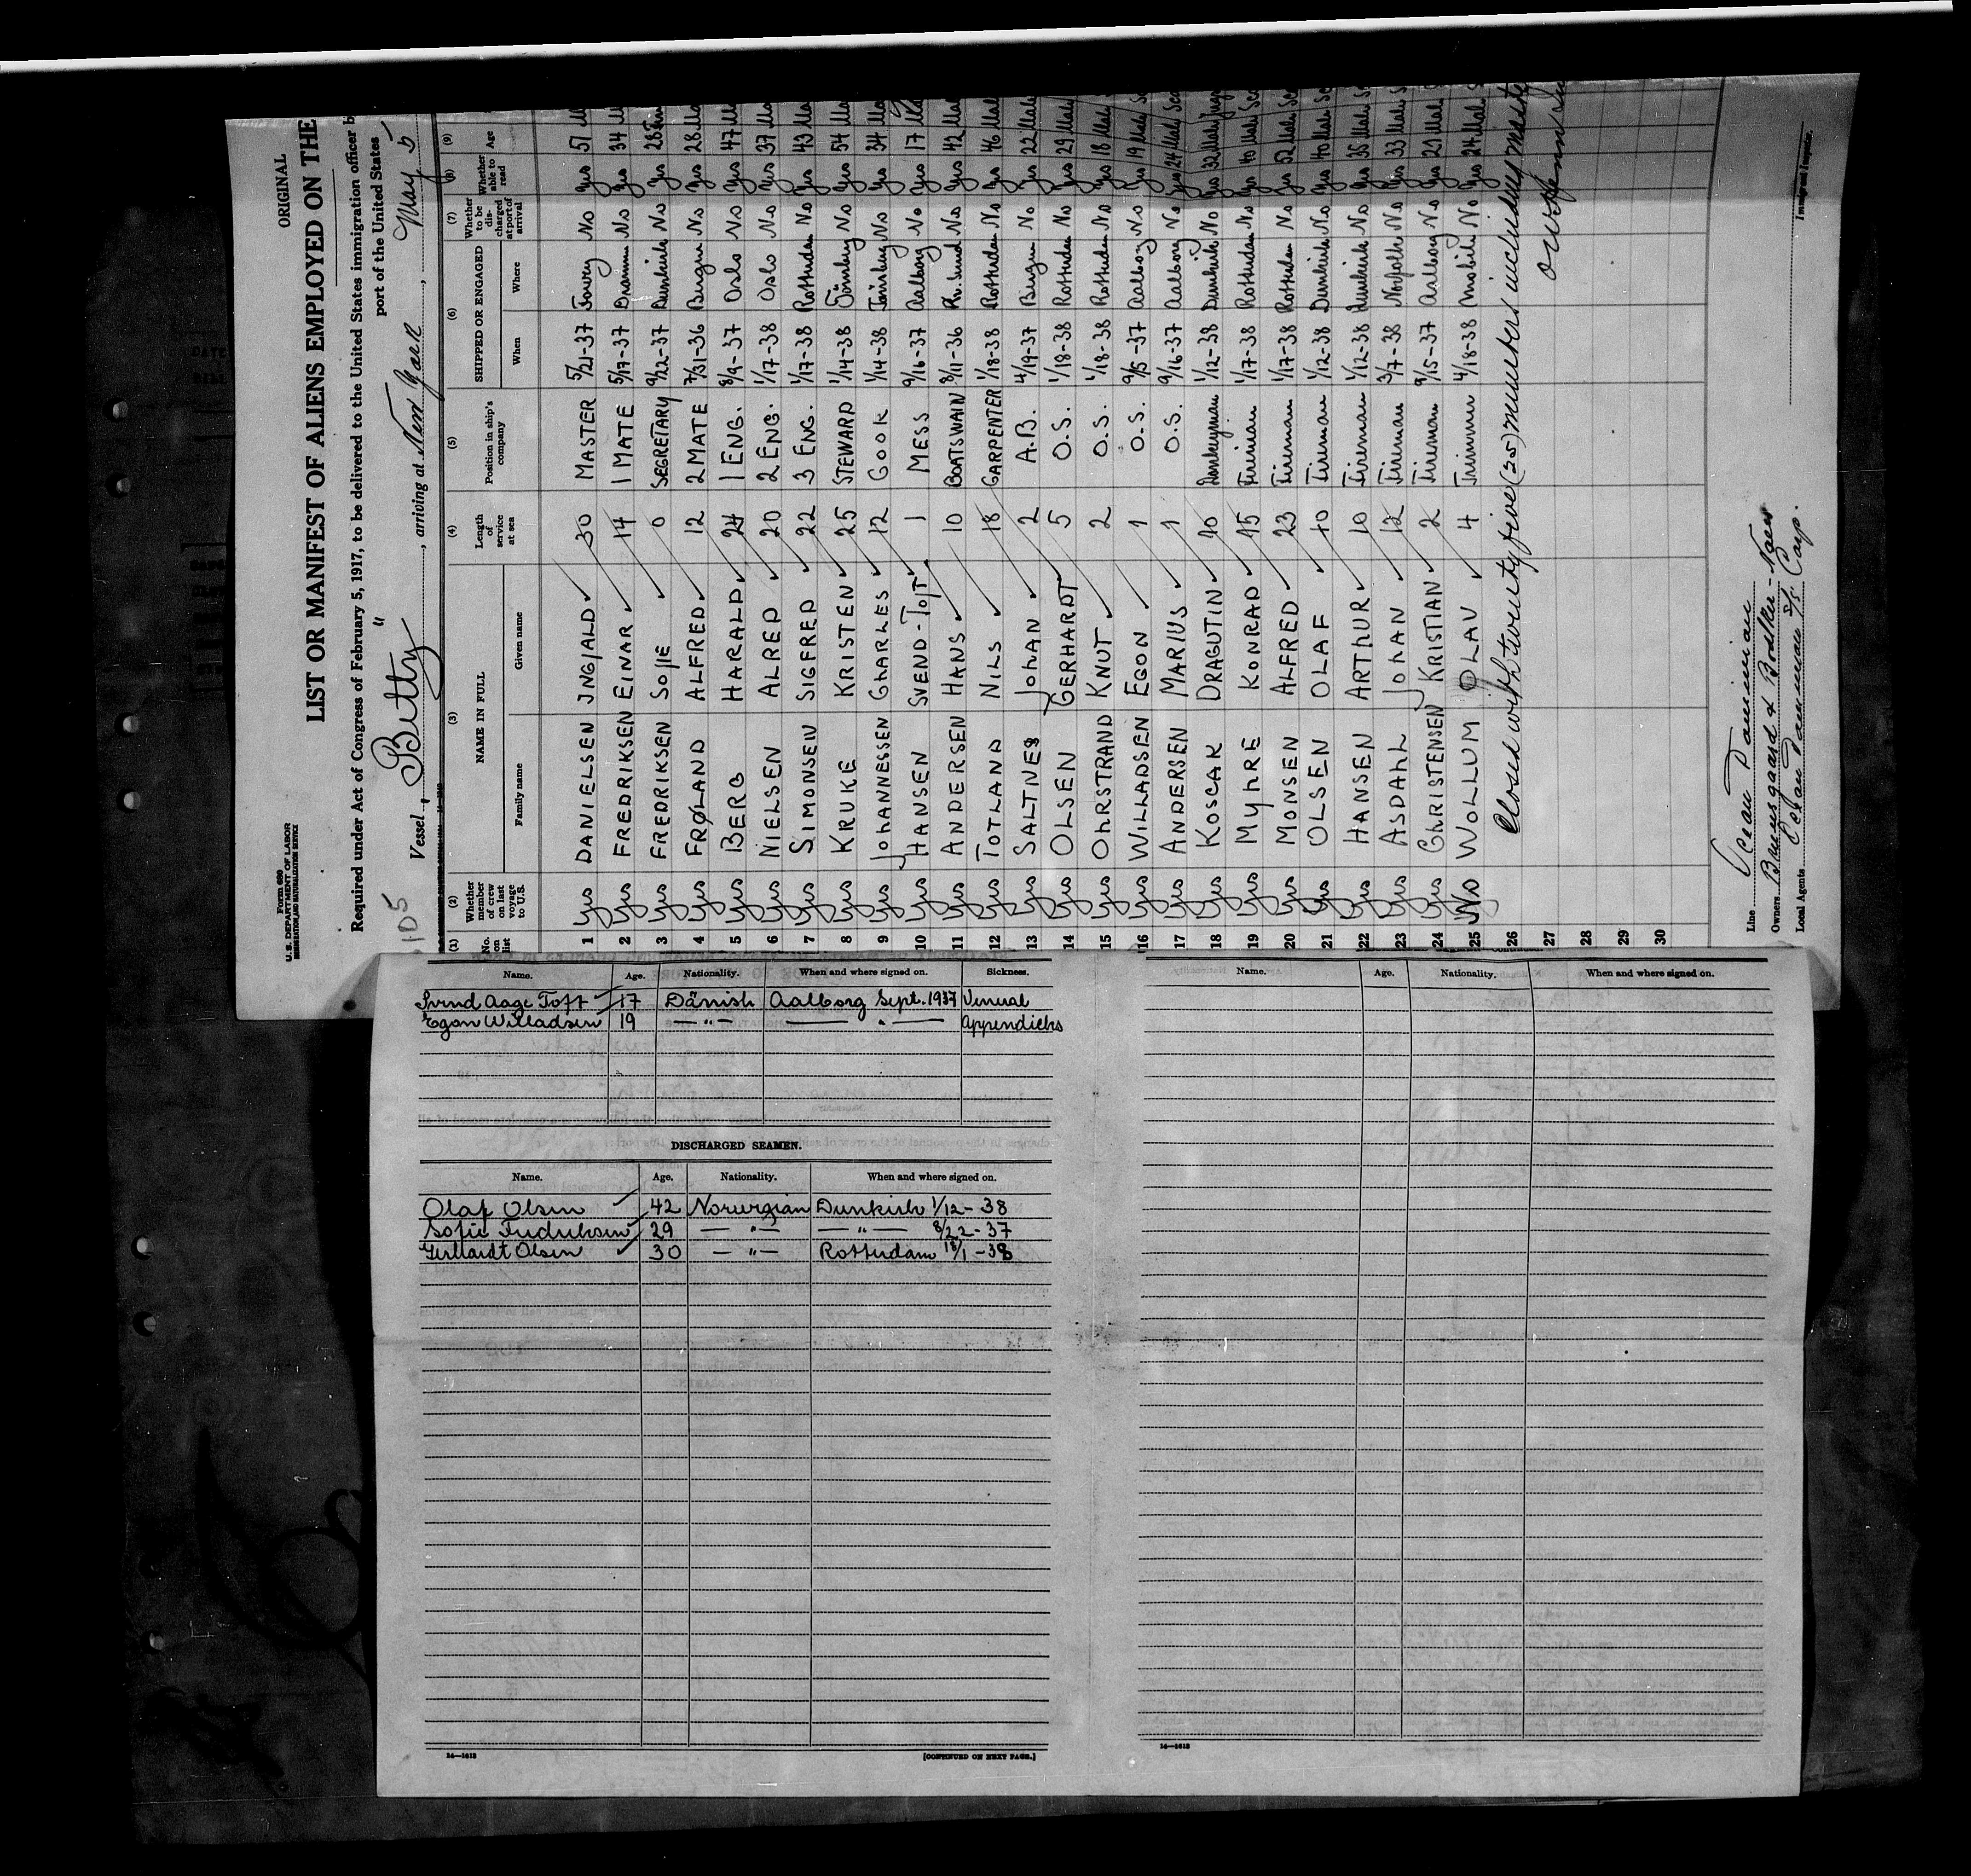 ORIGINAL
Form 680
U.S. DEPARTMENT OF LABOR
IMMIGRATION AND NATURALIZATION SERVICE
LIST OR MANIFEST OF ALIENS EMPLOYED ON THE
Required under Act of Congress of February 5, 1917, to be delivered to the United States immigration officer b
port of the United States
105
Vessel "Betty", arriving at New York, May 5
(1) No. on list (2) Whether member of crew on last voyage to U.S. (3) NAME IN FULL Family name Given name (4) Length of service at sea (5) Position in ship's company (6) SHIPPED OR ENGAGED When Where (7) Whether to be discharged at port of arrival (8) Whether able to read (9) Age
1 Yes DANIELSEN INGJALD 30 MASTER 5/21-37 No Yes 51
2 Yes FREDRIKSEN EINAR 14 1 MATE 5/17-37 No Yes 34
3 Yes FREDRIKSEN SOFIE 0 SEGRETARY 9/22-37 Dunkirk No Yes 28
4 Yes FRØLAND ALFRED 12 2 MATE 7/31-36 Bergen No Yes 28
5 Yes BERG HARALD 24 1 ENG. 8/9-37 Oslo No Yes 47
6 Yes NIELSEN ALRED 20 2 ENG. 1/17-38 Oslo No Yes 37
7 Yes SIMONSEN SIGFRED 22 3 ENG. 1/17-38 Rotterdam No Yes 43
8 Yes KRUKE KRISTEN 25 STEWARD 1/14-38 Tönsberg No Yes 54
9 Yes JOHANNESSEN CHARLES 12 COOK 1/14-38 Tönsberg No Yes 34
10 Yes HANSEN SVEND-TOFT 1 MESS 9/16-37 Aalborg No Yes 17
11 Yes ANDERSEN HANS 10 BOATSWAIN 8/11-36 Kr. Sund No Yes 42
12 Yes TOTLAND NILS 18 CARPENTER 1/18-38 Rotterdam No Yes 46
13 Yes SALTNES JOHAN 2 A.B. 4/19-37 Bergen No Yes 22 Male
14 Yes OLSEN GERHARDT 5 O.S. 1/18-38 Rotterdam No Yes 29 Male
15 Yes OHRSTRAND KNUT 2 O.S. 1/18-38 Rotterdam No Yes 18 Male
16 Yes WILLADSEN EGON 1 O.S. 9/15-37 Aalborg No Yes 19 Male
17 Yes ANDERSEN MARIUS 1 O.S. 9/16-37 Aalborg No Yes 24 Male
18 Yes KOSCAK DRAGUTIN 10 Donkeyman 1/12-38 Dunkirk No Yes 32 Male
19 Yes MYHRE KONRAD 15 Fireman 1/17-38 Rotterdam No Yes 40 Male
20 Yes MONSEN ALFRED 23 Fireman 1/17-38 Rotterdam No Yes 52 Male
21 Yes OLSEN OLAF 10 Fireman 1/12-38 Dunkirk No Yes 40 Male
22 Yes HANSEN ARTHUR 10 Fireman 1/12-38 Dunkirk No Yes 35 Male
23 Yes ASDAHL JOHAN 12 Fireman 3/7-38 Norfolk No Yes 33 Male
24 Yes CHRISTENSEN KRISTIAN 2 Fireman 9/15-37 Aalborg No Yes 21 Male
25 No WOLLUM OLAV 4 Trimmer 4/18-38 Mobile No Yes 24 Male
26 Closed with twenty five (25) members including master
27
28
29
30
Line Ocean Dominion
Owners Bruusgaard &
Local Agents Ocean Dominion S/S Corp.
Immigrant Inspector.
Name. Age. Nationality. When and where signed on. Sickness.
Svend Aage Toft 17 Dänish Aalborg Sept. 1937 Venereal
Egon Willadsen 19 — " — — " — Appendicits
DISCHARGED SEAMEN.
Name. Age. Nationality. When and where signed on.
Olaf Olsen 42 Norwegian Dunkirk 1/12-38
Sofie Fredriksen 29 — " — — " — 8/22-37
Gerhardt Olsen 30 — " — Rotterdam 18/1-38
14—1613
[CONTINUED ON NEXT PAGE.]
Name. Age. Nationality. When and where signed on.
14—1613